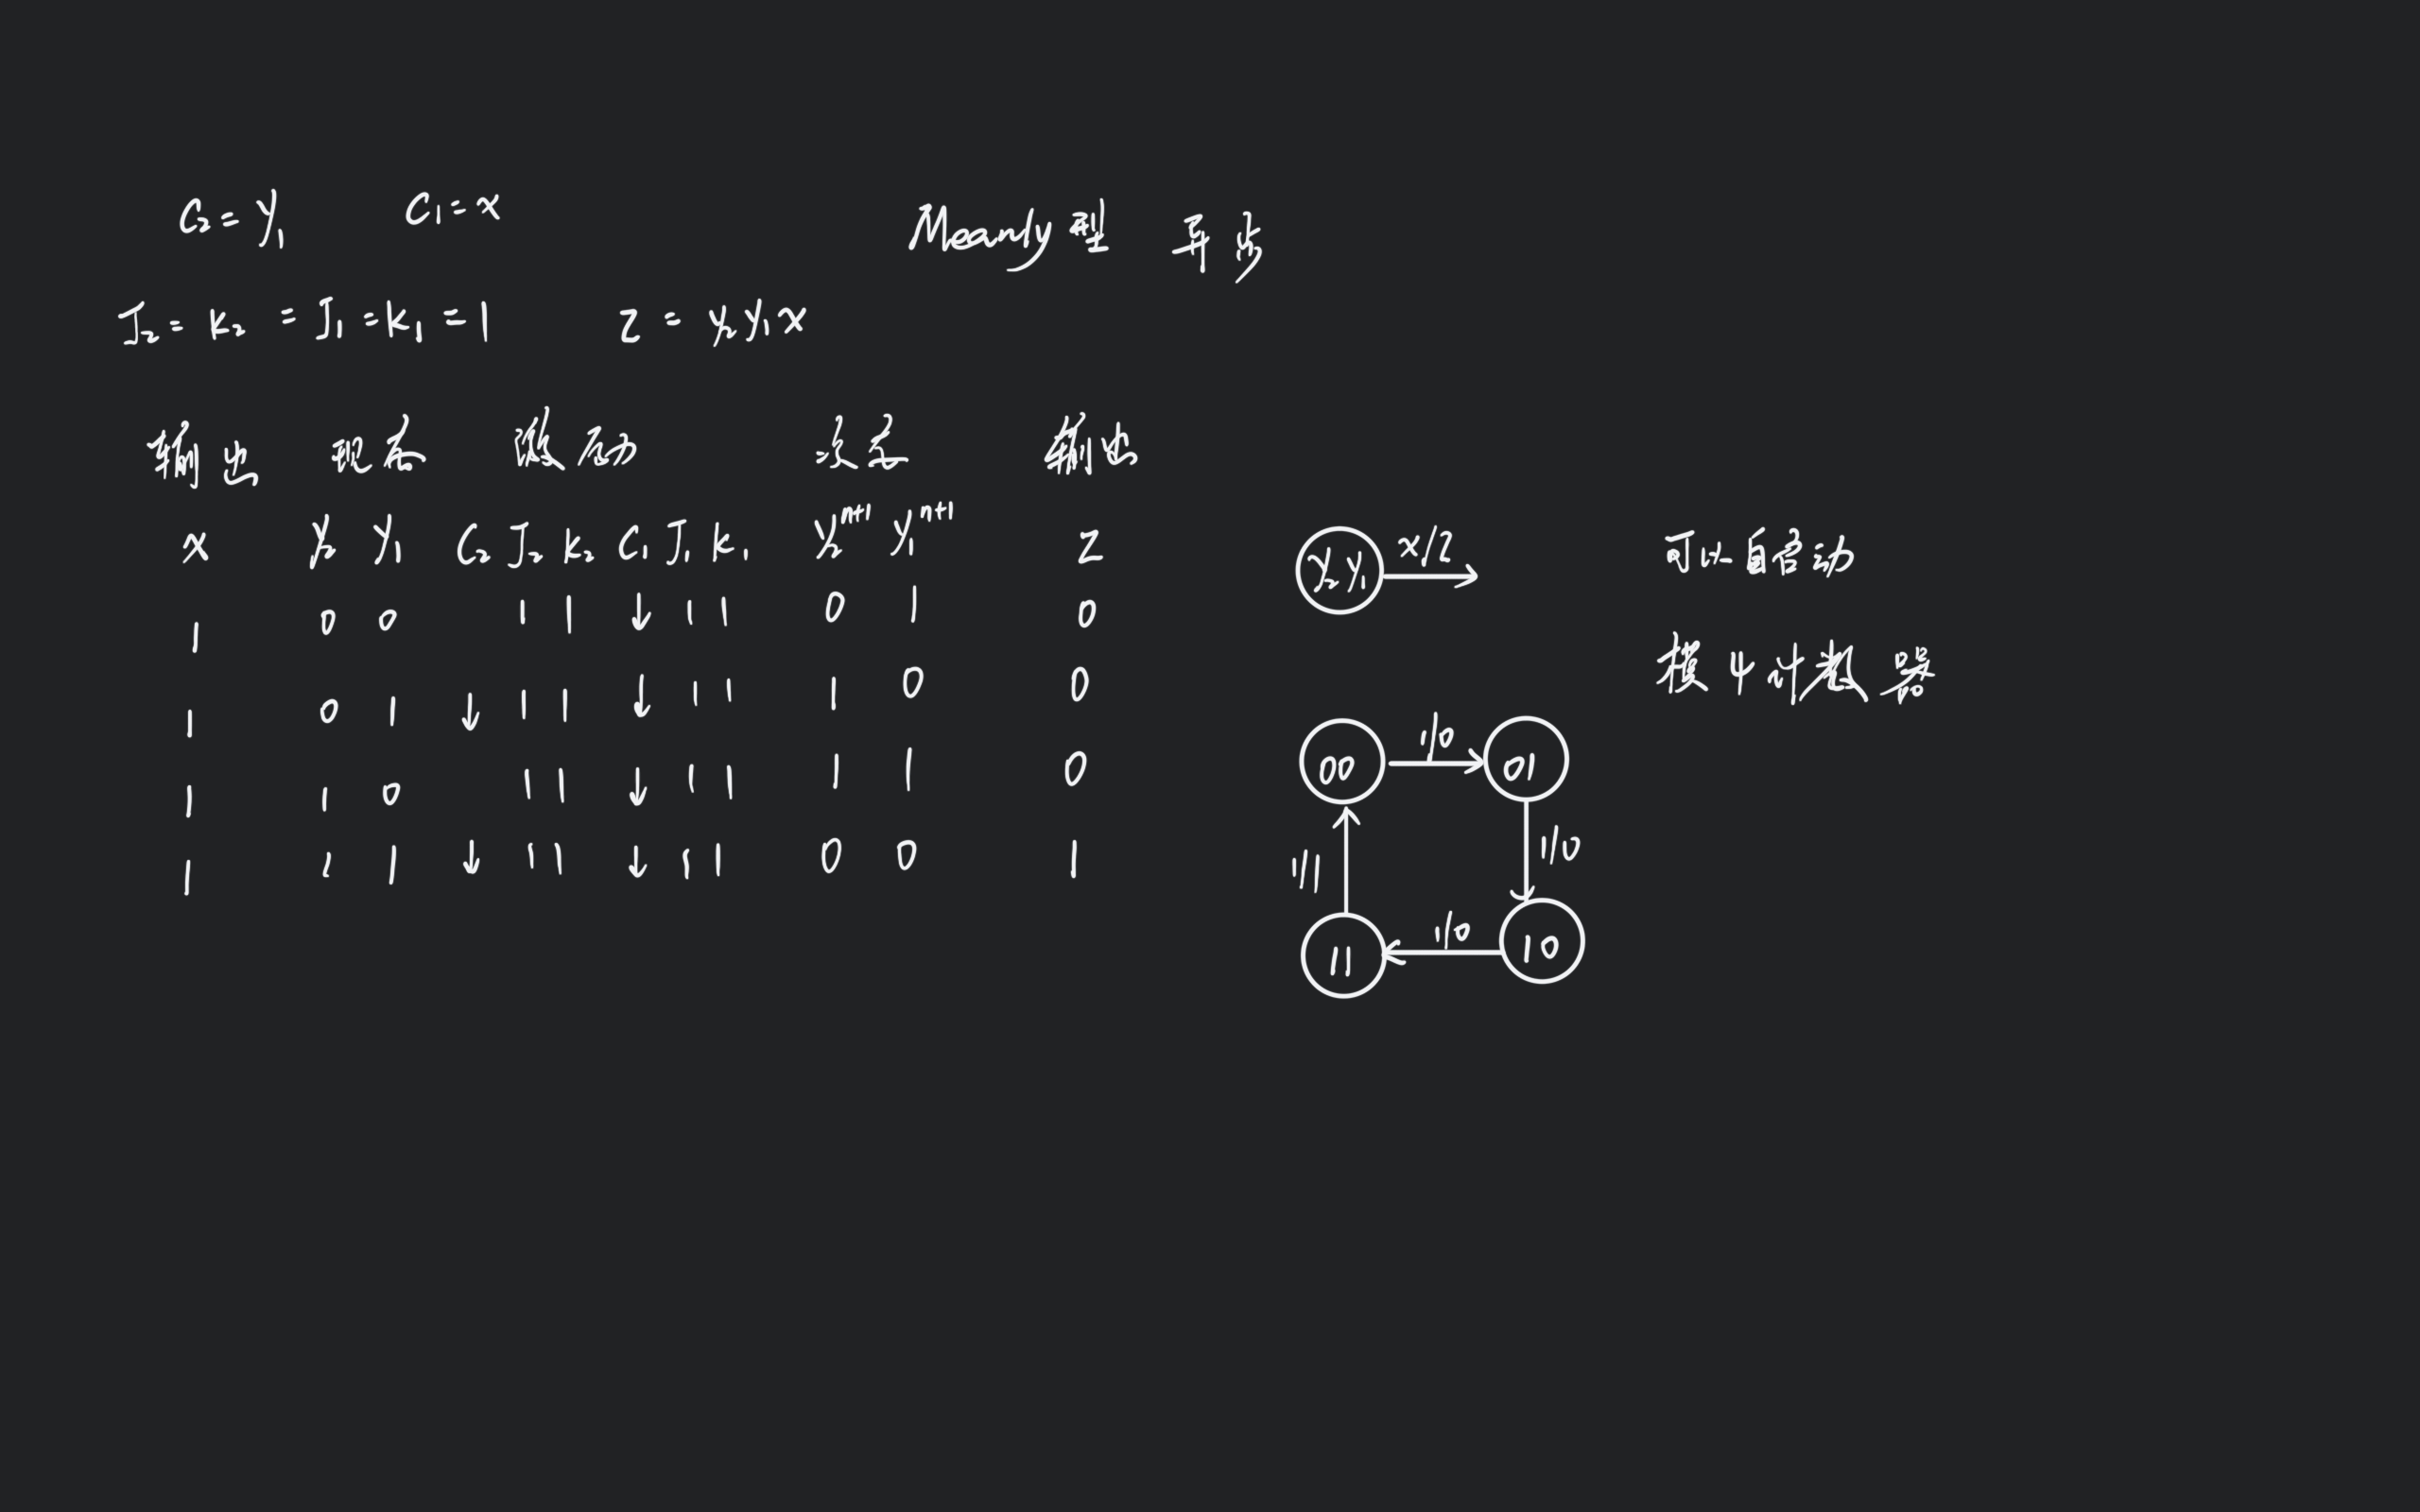 C₂=y₁ C₁=x Mearly型 异步
J₂=k₂=J₁=k₁=1 Z=y₂y₁x
输出 现态 激励 次态 输出
x y₂ y₁ C₂ J₂ k₂ C₁ J₁ k₁ y₂ⁿ⁺¹ y₁ⁿ⁺¹ Z
1 0 0 1 1 ↓ 1 1 0 1 0
1 0 1 ↓ 1 1 ↓ 1 1 1 0 0
1 1 0 1 1 ↓ 1 1 1 1 0
1 1 1 ↓ 1 1 ↓ 1 1 0 0 1
y₂y₁ x/Z
00 1/0 01
1/1 1/0
11 1/0 10
可以自启动
模4计数器